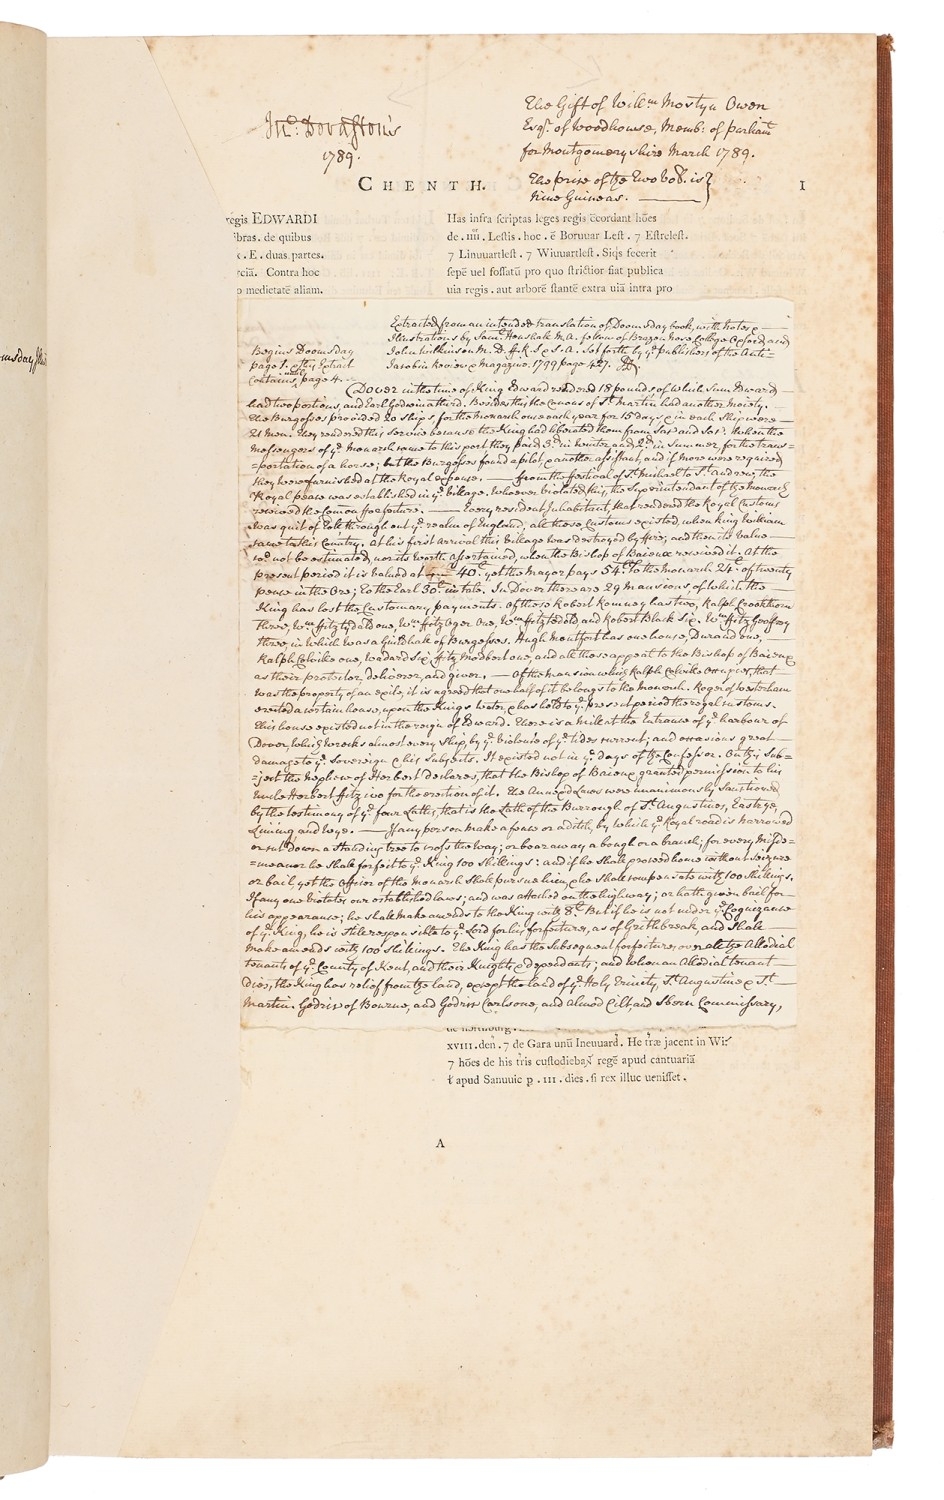 Jnº. Dovaston's
1789.
The Gift of Willm Mostyn Owen
Esqr. of Woodhouse, Memb: of parliamt
for Montgomeryshire March 1789.
The price of the two vols. is}
Nine Guineas.
CHENTH.
1
regis EDWARDI
ibras. de quibus
. E. duas partes.
rciā. Contra hoc
o medietatē aliam.
Has infra scriptas leges regis c̄cordant hōes
de . iiii . Lestis . hoc . ē Boruuar Lest . 7 Estrelest.
7 Linuuartlest . 7 Wiuuartlest . Siq̇s fecerit
sepē uel fossatū pro quo strictior fiat publica
uia regis . aut arborē stantē extra uiā intra pro
Extracted from an intended translation of Doomsday book, with Notes &
Illustrations by Saml. Henshall M.A. fellow of Brazen Nose College Oxford, and
John Wilkinson M.D. F.R.S. & S.A. Set forth by ye. publishers of the Anti-
Jacobin Review & Magazine. 1799 page 427. JD.
Begins Doomsday
page 1. & this Extract
contains, page 4.
Dover in the time of King Edward rendered 18 pounds of which sum Edward
had two portions, and Earl Godwin a third. Besides this the Canons of St. Martin had another moiety.
The Burgesses provided 20 ships for the Monarch once each year for 15 days & in each Ship were
21 Men. They rendered this service because the King had liberated them from Sac and Soc. When the
Messengers of ye. Monarch came to this port they paid 3d. in Winter and 2d. in Summer, for the trans-
=portation of a horse; but the Burgesses found a pilot, & another assistant, and if more were required
they were furnished at the Royal expence. — From the festival of St. Michael to St. Andrew, the
Royal peace was established in ye. village. Whoever violated this, the Superintendant of the Monarch
received the common forfeiture. — Every resident Inhabitant, that rendered the Royal Customs
was quit of Tole through out ye. realm of England, all these Customs existed, when King William
came to this Country. At his first arrival this Village was destroyed by fire; and then its value
cod. not be estimated, nor its worth assertained, when the Bishop of Baieux received it. At the
present period it is valued at 40£. yet the Mayor pays 54£. To the Monarch 24£. of twenty
pence in the Ore; To the Earl 30£. in tale. In Dover there are 29 Mansions, of which the
King has lost the Customary payments. Of these Robert Romney has two, Ralph Crookthorn
three, Wm. fitz Tydald one, Wm. fitz Oger One, Wm. fitz Tedold and Robert Black six. Wm. fitz Geoffrey
three, in which was a Guildhall of Burgesses. Hugh Montfort has one house, Durand one,
Ralph Colvike one, Wadard six, fitz Modbert one, and all these appeal to the Bishop of Baieux
as their protector, deliverer, and giver. — Of the Mansion which Ralph Colvike occupies, that
was the property of an exile, it is agreed that one half of it belongs to the Monarch. Roger of Westerham
erected a certain house, upon the Kings Water, & has held to ye. present period the regal customs.
This house existed not in the reign of Edward. There is a Mill at the Entrance of ye. harbour of
Dover, which wrecks almost every Ship, by ye. Violence of ye. tides current; and occasions great
damage to ye. Sovereign & his subjects. It existed not in ye. days of the Confessor. On this Sub-
=ject the Nephew of Herbert declares, that the Bishop of Baieux granted permission to his
Uncle Herbert fitz ivo for the erection of it. The Annexed Laws were unanimously sanctioned
by the testimony of ye. four Laths, that is the Lath of the Burrough of St. Augustines, Eastrye,
Lining and Wye. — If any person make a fence or a ditch, by which ye. Royal road is narrowed
or cut down a standing tree to cross the way; or bear away a bough or a branch; for every Misde-
=meanor he shall forfeit to ye. King 100 shillings: and if he shall proceed home without seizure
or bail, yet the Officer of the Monarch shall pursue him, & he shall compensate with 100 shillings.
If any one violates our established laws; and was attached on the highway; or hath given bail for
his appearance; he shall make amends to the King with 8£. But if he is not under ye. Cognizance
of ye. King, he is still responsible to ye. Lord for his forfeiture, as of Grithbreak, and shall
make amends with 100 shillings. The King has the subsequent forfeiture, over all the Allodial
tenants of ye. County of Kent, and their Knights & dependants; and when an Allodial tenant
dies, the King has relief from the land, except the land of ye. Holy Trinity, St. Augustine & St.
Martin. Godric of Bourne, and Godric Carlsone, and Alnod Cilt, and Sbern Commissary,
xviii . den̄ . 7 de Gara unū Ineuuard̄. He tr̄æ jacent in Wi
7 hōes de his tr̄is custodiebaɴ̄ regē apud cantuariā
ł apud Sanuuic p . iii . dies . si rex illuc uenisset .
A